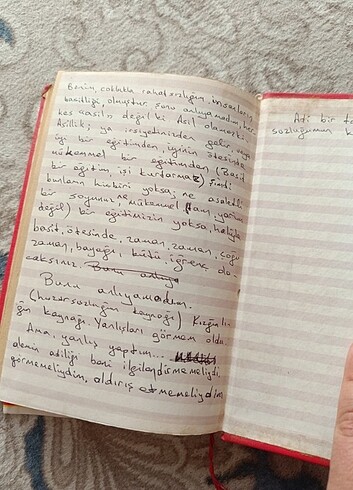 Benim, çoklukla rahatsızlığım, insanların
basitliği, olmuştur. Şunu anlıyamadım, her-
kes asil, değil ki Asil olamaz.
Asillik; ya irsiyetinizden gelir, veya
iyi bir eğitimden, iyinin ötesinde
mükemmel bir eğitimden (Basit
bir eğitim, işi kurtarmaz) Şimdi
bunların hiçbiri yoksa; ne asaletli
bir soyunuz, ne mükemmel (tam, yarım
değil) bir eğitiminiz yoksa, haliyle
basit, ötesinde, zaman, zaman, çoğu
zaman, bayağı, kötü, iğrenç, ola-
caksınız.
Bunu anlıyamadım.
(huzursuzluğun kaynağı) Kızgınlı-
ğın kaynağı. Yanlışları görmem oldu.
Ama, yanlış yaptım...
alemin adiliği beni ilgilendirmemeliydi.
görmemeliydim, aldırış etmemeliydim
Adi bir
sözluğumun